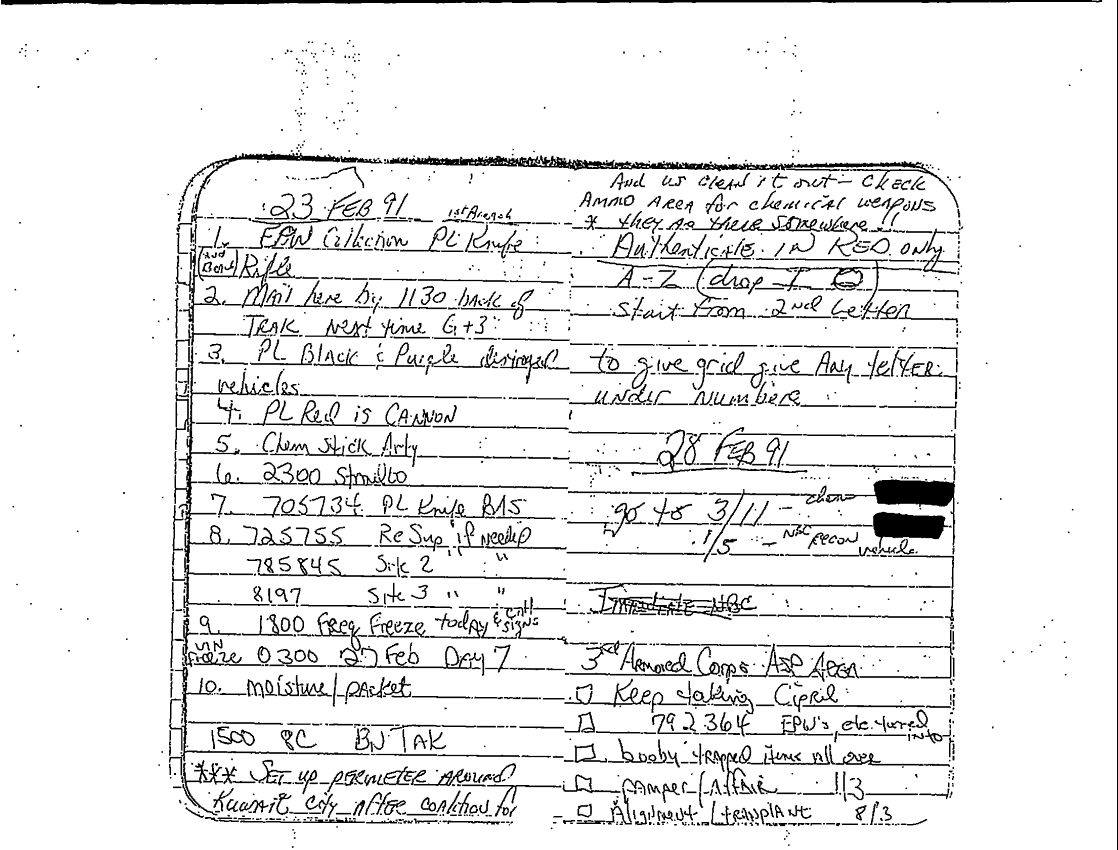 23 FEB 91
1. EPW Collection PL Knife
Rifle
2. Mail here by 1130 back of
TRAK next time G+3
3. PL Black & Purple
vehicles
4. PL Red is CANNON
5. Chem stick Arty
6. 2300
7. 705734 PL Knife BAS
8. 725755 ReSup if needed
785845 Site 2 "
8197 Site 3 " "
9. 1800 Freq Freeze today & SIGNS
freeze 0300 27 Feb DAY 7
10. moisture/packet
1500 BN TAK
*** SET up perimeter AROUND
Kuwait city AFTER coalition for
And us clean it out - CHECK
AMMO AREA for chemical weapons
* they are there somewhere!!
Authenticate IN RED only
A-Z (drop I)
start from 2nd Letter
to give grid give Any letter
under numbers
28 FEB 91
go to 3/11 - chem
1/5 - NBC RECON vehicle
Immediate NBC
3rd Armored Corps ASP AREA
Keep taking Cipril
792364 EPW's, etc. turned into
booby trapped items all over
pamper/AffAIR 1/3
Alignment/transplant 8/3